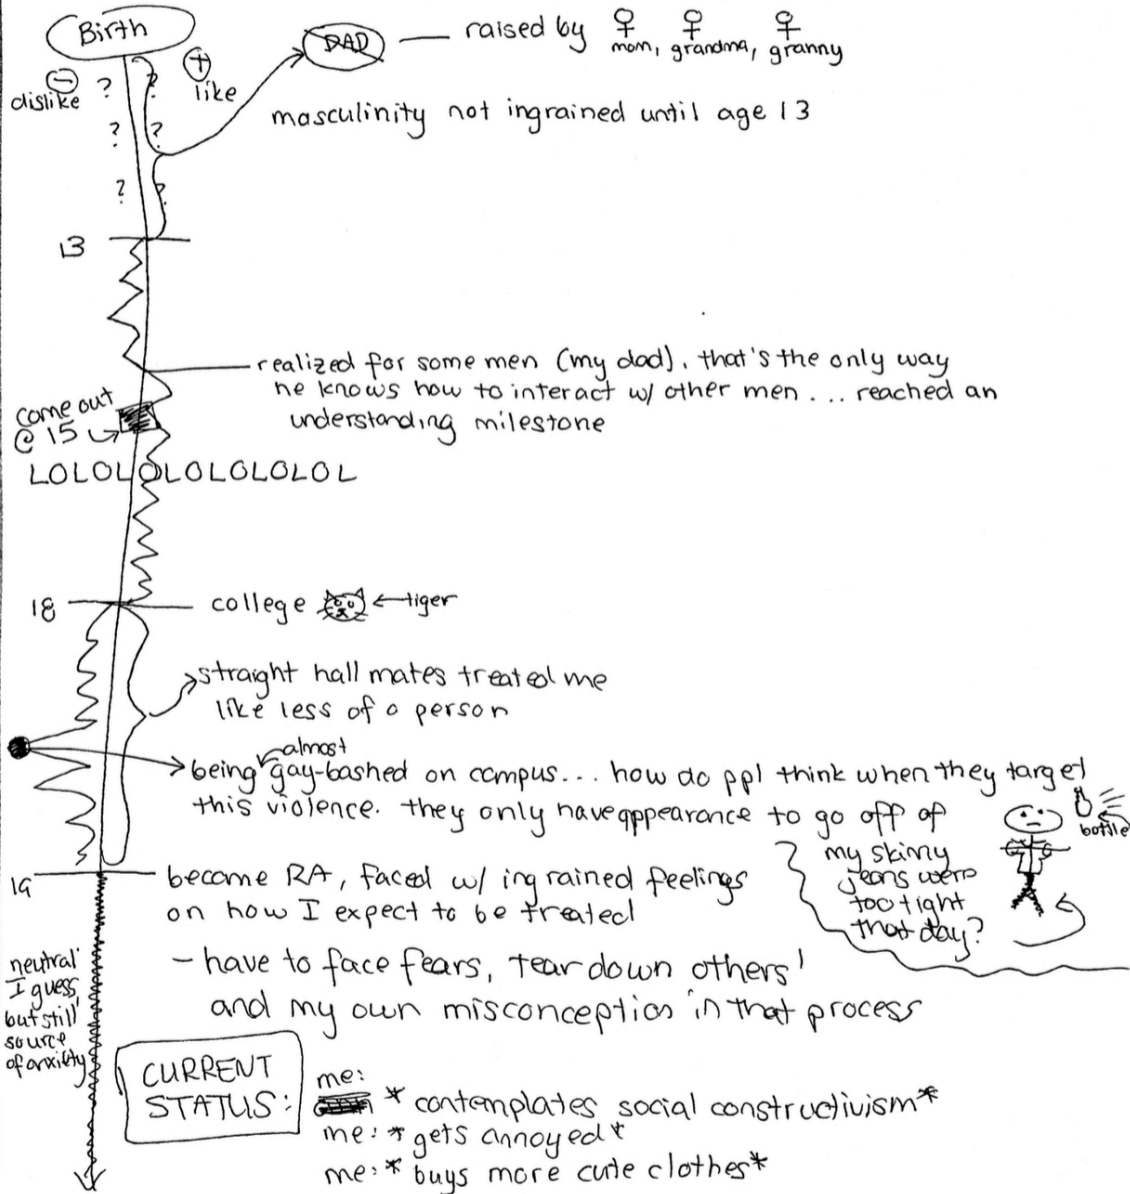 Birth
DAD
raised by ♀ ♀ ♀
mom, grandma, granny
⊖
dislike
⊕
like
? ?
? ?
? ?
masculinity not ingrained until age 13
13
realized for some men (my dad), that's the only way
he knows how to interact w/ other men .... reached an
understanding milestone
come out
@ 15
LOLOLOLOLOLOLOL
18
college
tiger
straight hall mates treated me
like less of a person
almost
being gay-bashed on campus... how do ppl think when they target
this violence. they only have appearance to go off of
bottle
my skinny
jeans were
too tight
that day?
19
become RA, faced w/ ingrained feelings
on how I expect to be treated
- have to face fears, tear down others'
and my own misconception in that process
neutral
I guess
but still
source
of anxiety
CURRENT
STATUS:
me:
* contemplates social constructivism*
me: * gets annoyed*
me: * buys more cute clothes*